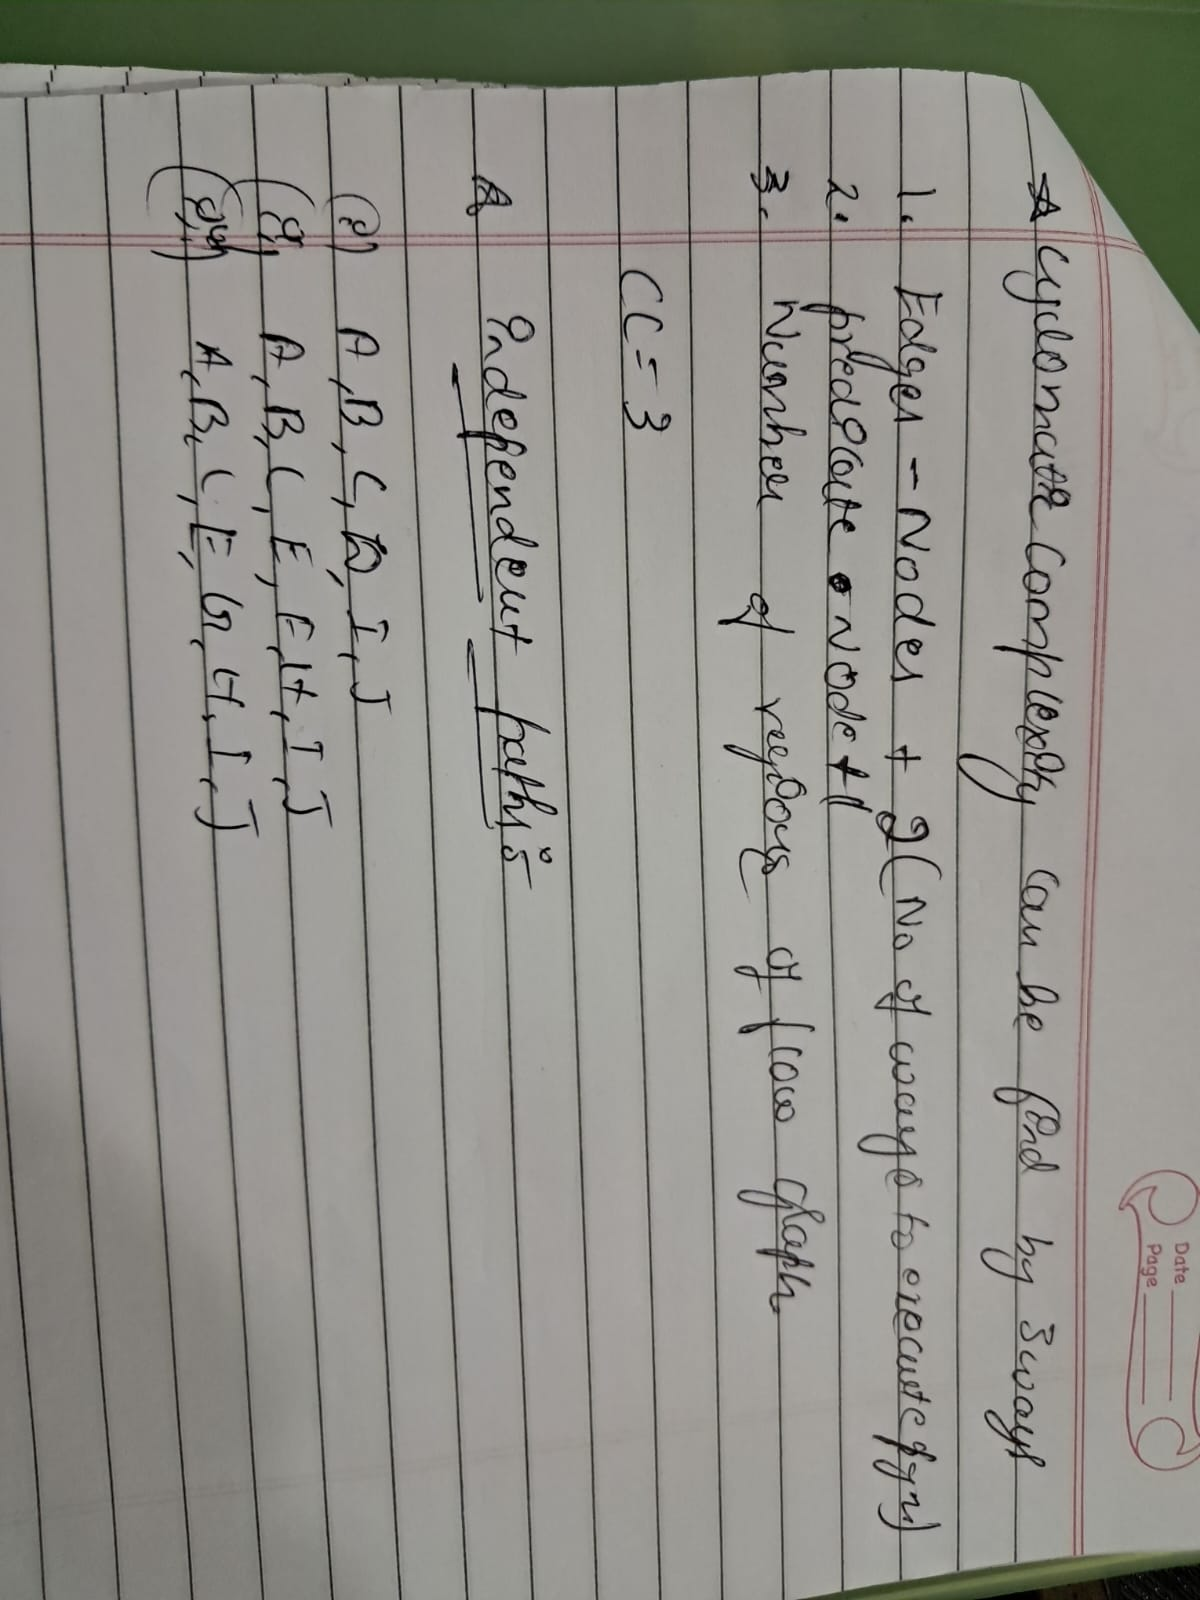 Date
Page
Cyclomatic Complexity can be find by 3 ways
1. Edges - Nodes + 2 (No of ways to execute pgm)
2. predicate Node + 1
3. Number of regions of flow graph
CC = 3
Independent paths :-
(i) A, B, C, D, I, J
(ii) A, B, C, E, F, H, I, J
(iii) A, B, C, E, G, H, I, J